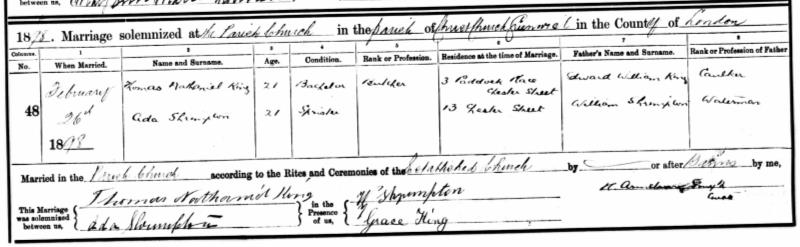 between us,
1898. Marriage solemnized at the Parish Church in the parish of Christ Church in the County of London
Columns. 1 2 3 4 5 6 7 8
No. When Married. Name and Surname. Age. Condition. Rank or Profession. Residence at the time of Marriage. Father's Name and Surname. Rank or Profession of Father
48 February 26th 1898 Thomas Nathaniel King 21 Bachelor Butcher 3 Paddock Place Chester Street Edward William King Caulker
Ada Shrimpton 21 Spinster 13 Chester Street William Shrimpton Waterman
Married in the Parish Church according to the Rites and Ceremonies of the Established Church by — or after Banns by me,
This Marriage was solemnized between us, Thomas Nathaniel King
Ada Shrimpton
in the Presence of us, W Shrimpton
Grace King